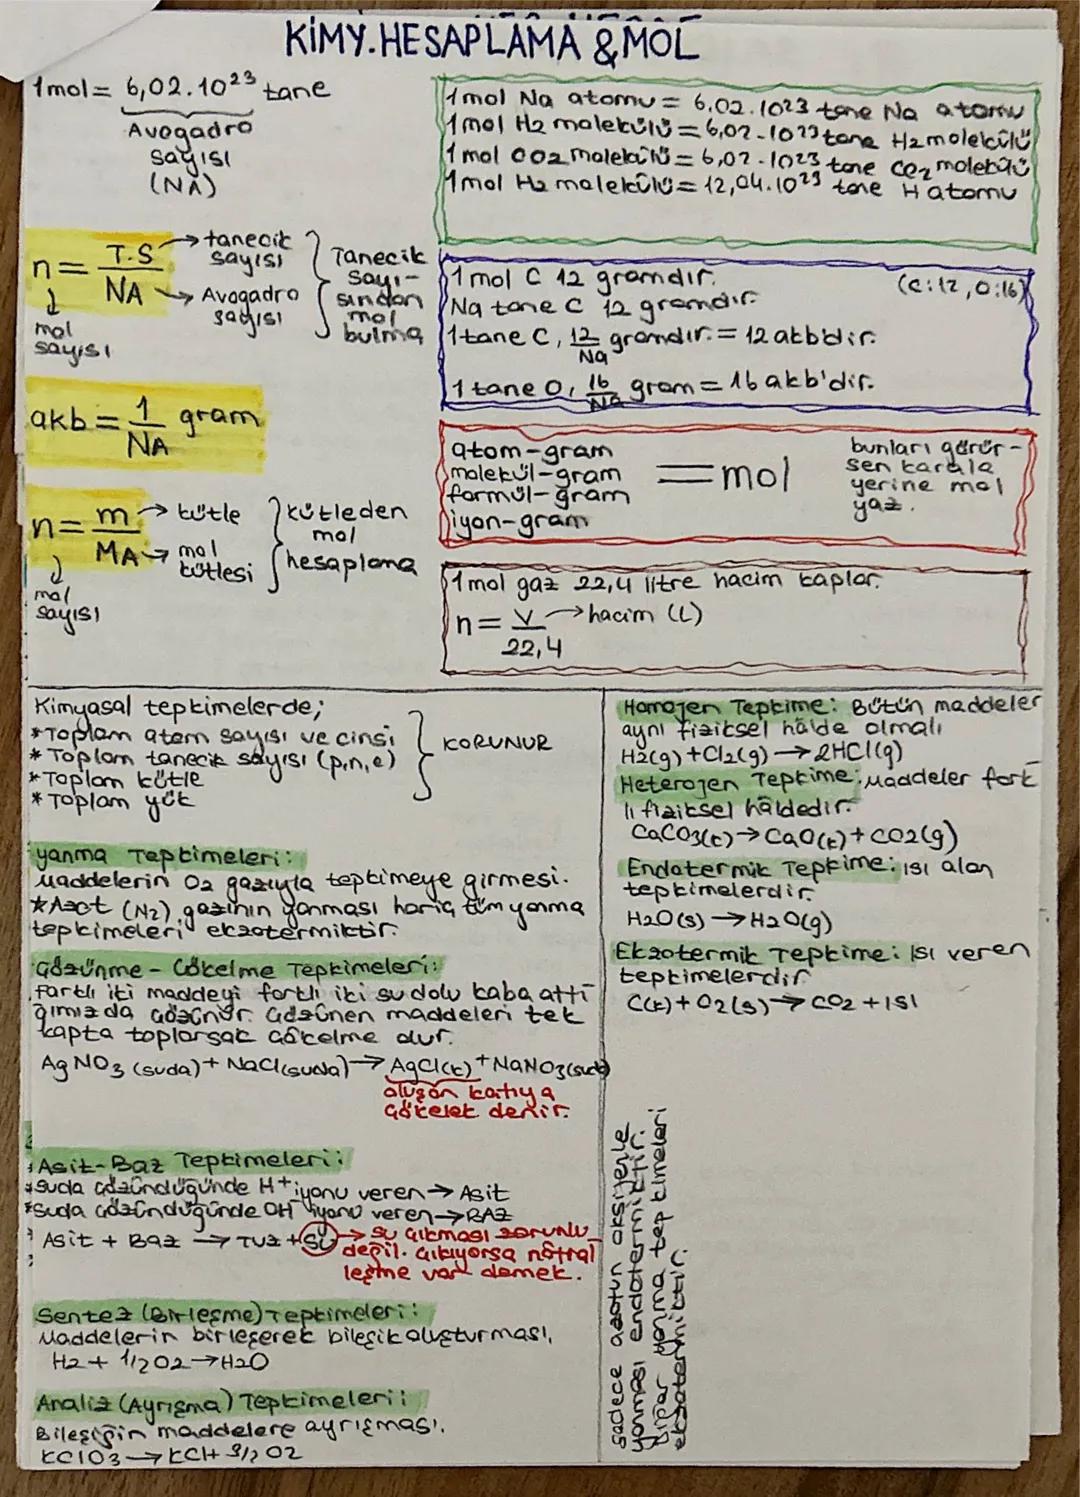 KİMY.HESAPLAMA & MOL
1mol = 6,02.10²³ tane
Avogadro
sayısı
(NA)
1 mol Na atomu = 6,02.10²³ tane Na atomu
1 mol H2 molekülü = 6,02.10²³ tane H2 molekülü
1 mol CO2 molekülü = 6,02.10²³ tane CO2 molekülü
1 mol H2 molekülü = 12,04.10²³ tane H atomu
n = T.S / NA
→ tanecik
sayısı
→ Avogadro
sayısı
mol
sayısı
Tanecik
sayı-
sından
mol
bulma
1 mol C 12 gramdır. (C:12, O:16)
Na tane C 12 gramdır.
1 tane C, 12/Na gramdır. = 12 akb'dir.
1 tane O, 16/Na gram = 16 akb'dir.
akb = 1/NA gram
atom-gram
molekül-gram
formül-gram
iyon-gram
= mol
bunları görür-
sen karala
yerine mol
yaz.
n = m / MA
→ kütle
→ mol
kütlesi
mol
sayısı
kütleden
mol
hesaplama
1 mol gaz 22,4 litre hacim kaplar.
n = V / 22,4 → hacim (L)
Kimyasal tepkimelerde;
* Toplam atom sayısı ve cinsi
* Toplam tanecik sayısı (p,n,e)
* Toplam kütle
* Toplam yük
KORUNUR
Yanma Tepkimeleri:
Maddelerin O2 gazıyla tepkimeye girmesi.
*Azot (N2) gazının yanması hariç tüm yanma
tepkimeleri ekzotermiktir.
Çözünme - Çökelme Tepkimeleri:
Farklı iki maddeyi farklı iki su dolu kaba attı
ğımızda çözünür. Çözünen maddeleri tek
kapta toplarsak çökelme olur.
AgNO3 (suda) + NaCl (suda) → AgCl(k) + NaNO3(suda)
oluşan katıya
çökelek denir.
Asit-Baz Tepkimeleri:
*Suda çözündüğünde H+ iyonu veren → Asit
*Suda çözündüğünde OH- iyonu veren → BAZ
* Asit + Baz → Tuz + Su → su çıkması zorunlu
değil. Çıkıyorsa nötral
leşme var demek.
Sentez (Birleşme) Tepkimeleri:
Maddelerin birleşerek bileşik oluşturması.
H2 + 1/2 O2 → H2O
Analiz (Ayrışma) Tepkimeleri:
Bileşiğin maddelere ayrışması.
KClO3 → KCl + 3/2 O2
Homojen Tepkime: Bütün maddeler
aynı fiziksel hâlde olmalı
H2(g) + Cl2(g) → 2HCl(g)
Heterojen Tepkime: Maddeler fark
lı fiziksel hâldedir.
CaCO3(k) → CaO(k) + CO2(g)
Endotermik Tepkime: ısı alan
tepkimelerdir.
H2O(s) → H2O(g)
Ekzotermik Tepkime: Isı veren
tepkimelerdir
C(k) + O2(s) → CO2 + ısı
sadece azotun oksijenle
yanması endotermiktir.
Diğer yanma tepkimeleri
ekzotermiktir.